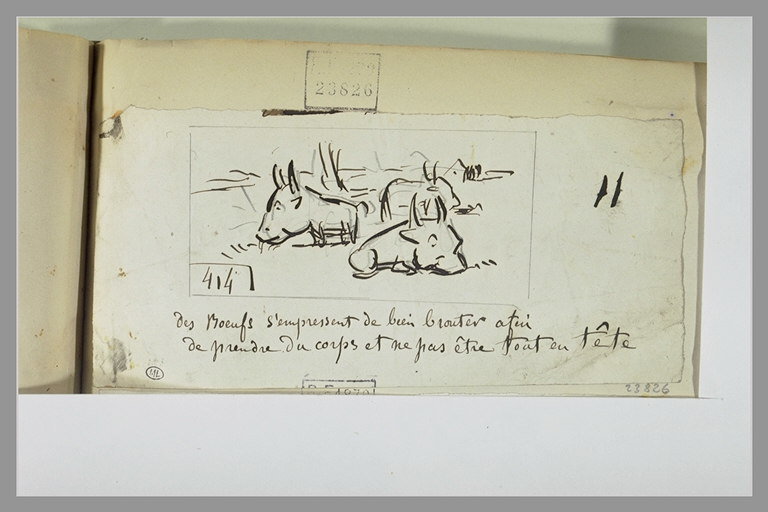 23826
11
414
des Boeufs s'empressent de bien brouter afin
de prendre du corps et ne pas être tout en tête
R.F 1870
23826